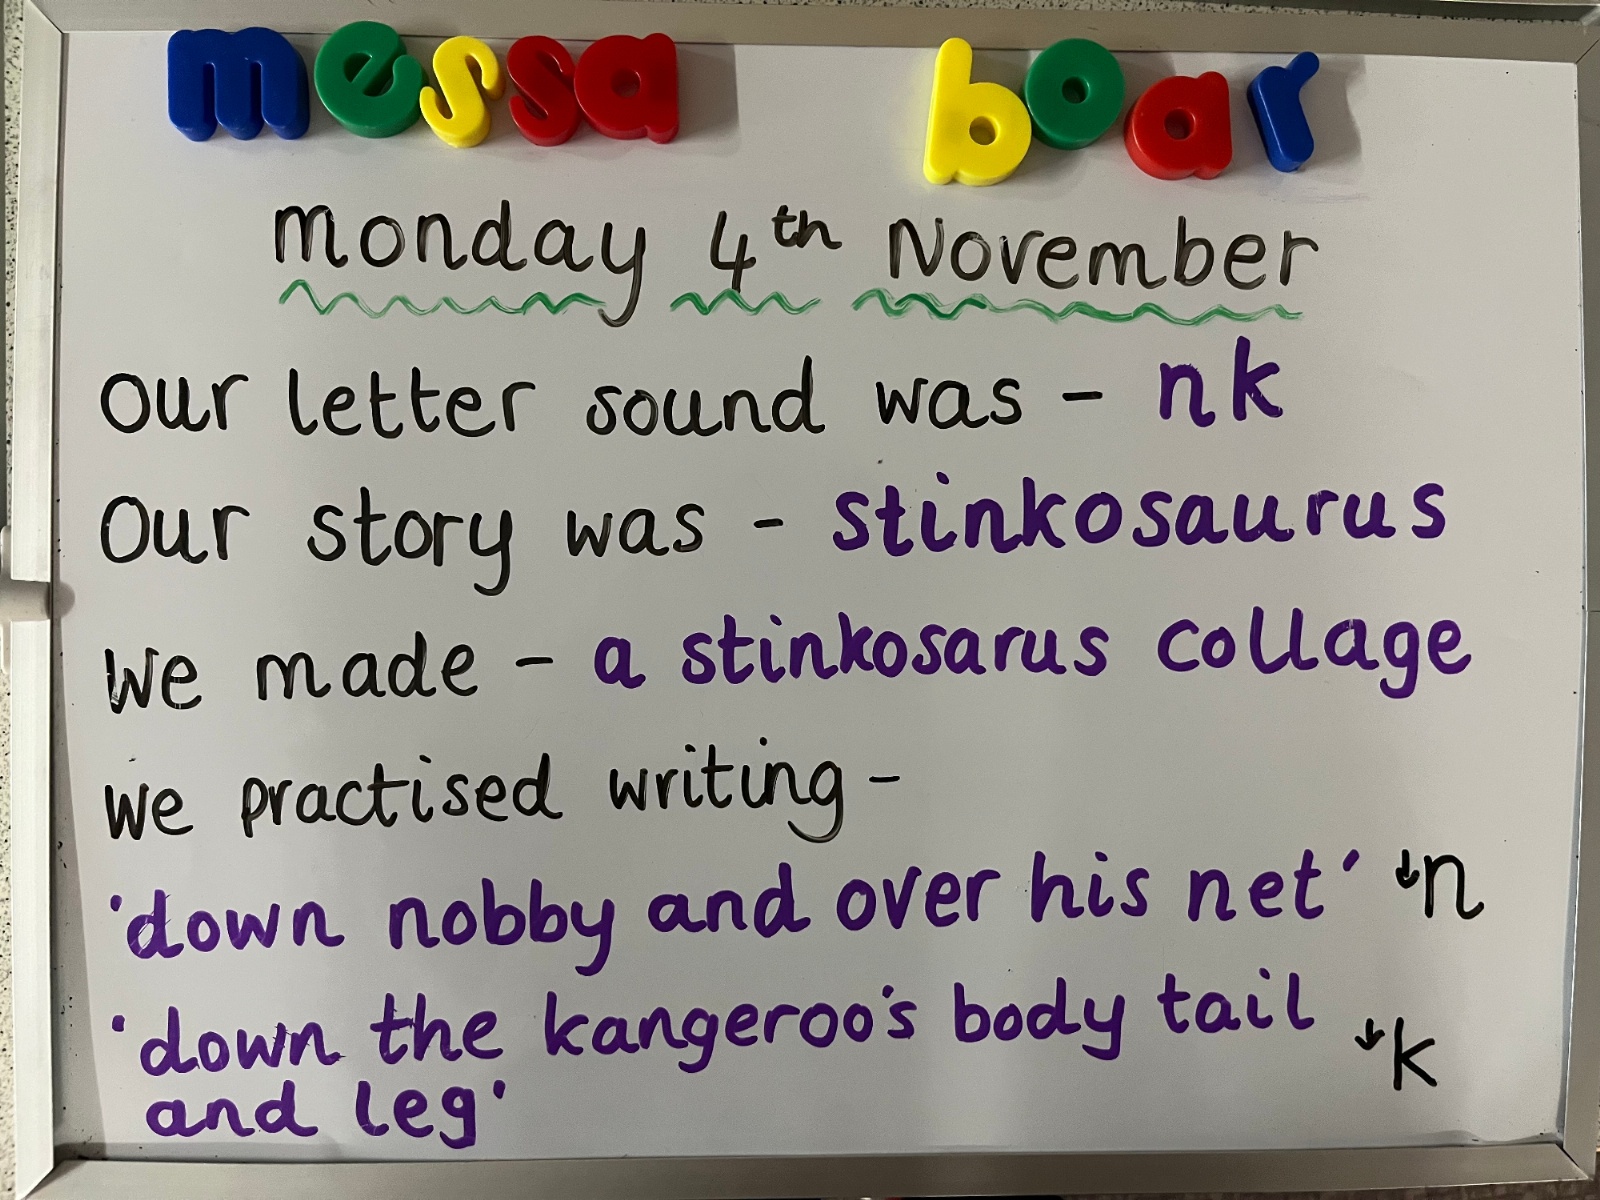 messa boar
Monday 4th November
Our letter sound was - nk
Our story was - stinkosaurus
We made - a stinkosarus collage
We practised writing -
'down nobby and over his net' ↓n
'down the kangeroo's body tail ↓k
and leg'